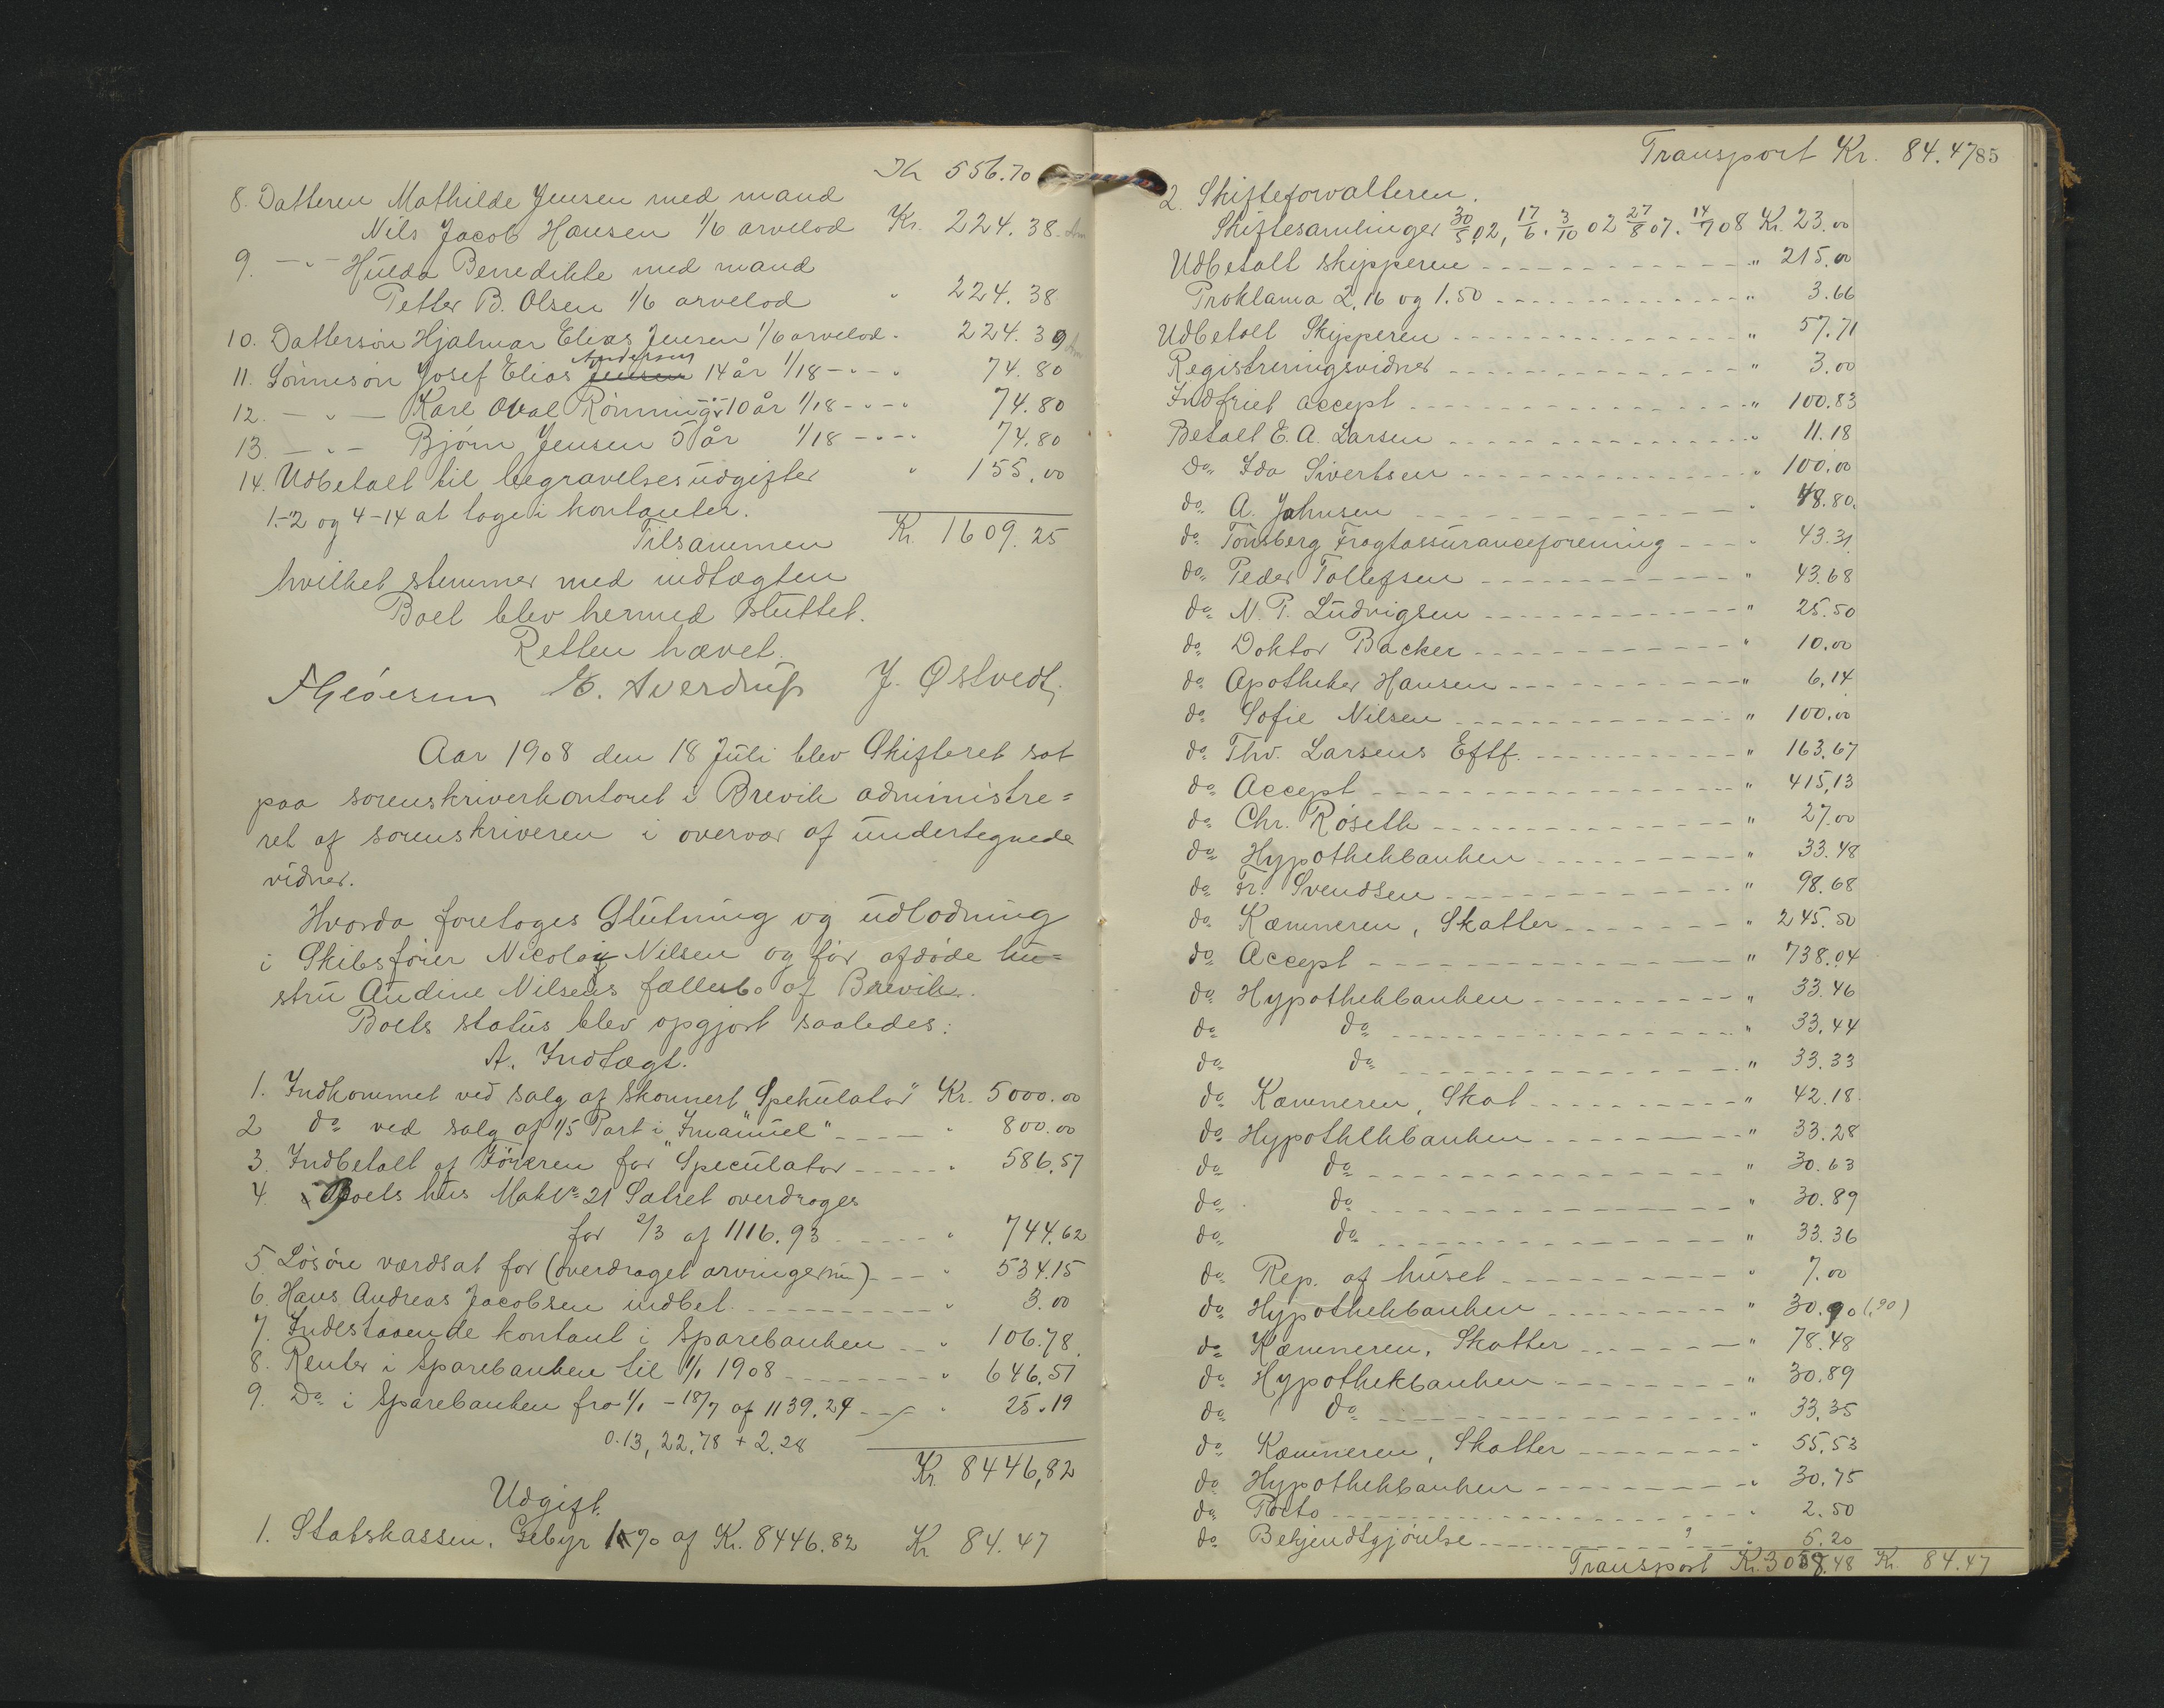 Kr 556.70
8. Datteren Mathilde Jensen med mand
Nils Jacob Hansen 1/6 arvelod Kr. 224.38
9. — " — Hulda Benedikte med mand
Petter B. Olsen 1/6 arvelod " 224.38
10. Dattersön Hjalmar Elias Jensen 1/6 arvelod " 224.39
Andersen
11. Sönnesön Josef Elias Jensen 14 år 1/18 - " - " 74.80
12. — " — Karl Oval Rönning 10 år 1/18 - " - " 74.80
13. — " — Bjørn Jensen 5 år 1/18 - " - " 74.80
14. Udbetalt til begravelsesudgifter " 155.00
1-2 og 4-14 at tage i kontanter.
Tilsammen Kr. 1609.25
hvilket stemmer med indtægten
Boet blev hermed sluttet.
Retten hævet.
E. Sverdrup J. Østvedt
Aar 1908 den 18 Juli blev Skifteret sat
paa sorenskriverkontoret i Brevik administre=
ret af sorenskriveren i overvær af undertegnede
vidner.
Hvorda foretoges Slutning og udlodning
i Skibsfører Nicolai Nilsen og før afdöde hu=
stru Audine Nilsens fællesbo af Brevik.
Boets status blev opgjort saaledes:
A. Indtægt.
1. Indkommet ved salg af skonnert "Spekulator" Kr. 5000.00
2 do ved salg af 1/5 Part i "Imanuel" " 800.00
3. Indbetalt af Föreren for "Speculator " 586.57
4 Boets hus Mak No 21 Satret overdrages
for 2/3 af 1116.93 " 744.62
5. Lösöre værdsat for (overdraget arvingerne) " 534.15
6. Hans Andreas Jacobsen indbet. " 3.00
7. Indestaaende kontant i Sparebanken " 106.78
8. Renter i Sparebanken til 1/1 1908 " 646.51
9. Do i Sparebanken fra 1/1 - 18/7 af 1139.24 " 25.19
0.13, 22.78 + 2.28
Kr 8446,82
Udgift.
1. Statskassen. Gebyr 1% af Kr. 8446.82 Kr 84.47
Transport Kr. 84.47
85
2. Skifteforvalteren.
Skiftesamlinger 30/5 02, 17/6. 3/10 02 27/8 07. 14/7 08 Kr. 23.00
Udbetalt skipperen " 215.00
Proklama 2.16 og 1.50 " 3.66
Udbetalt Skipperen " 57.71
Registreringsvidner " 3.00
Indfriet accept " 100.83
Betalt E. A. Larsen " 11.18
Do Ida Sivertsen " 100.00
do A. Johnsen " 48.80
do Tönsberg Fragtassuranceforening " 43.31
do Peder Tollefsen " 43.68
do N. P. Ludvigsen " 25.50
do Doktor Backer " 10.00
do Apotheker Hansen " 6.14
do Sofie Nilsen " 100.00
do Thv. Larsens Eftf. " 163.67
do Accept " 415,13
do Chr. Röseth " 27.00
do Hypothekbanken " 33.48
do Fr. Svendsen " 98.68
do Kæmneren, Skatter " 245.50
do Accept " 738.04
do Hypothekbanken " 33.46
do do " 33.44
do do " 33.33
do Kæmneren, Skat " 42.18
do Hypothekbanken " 33.28
do do " 30.63
do do " 30.89
do do " 33.36
do Rep. af huset " 7.00
do Hypothekbanken " 30.90 (.90)
do Kæmneren, Skatter " 78.48
do Hypothekbanken " 30.89
do do " 33.35
do Kæmneren, Skatter " 55.53
do Hypothekbanken " 30.75
do Porto " 2.50
do Bekjendtgjörelse ? " 5.20
Transport Kr. 3058.48 Kr. 84.47